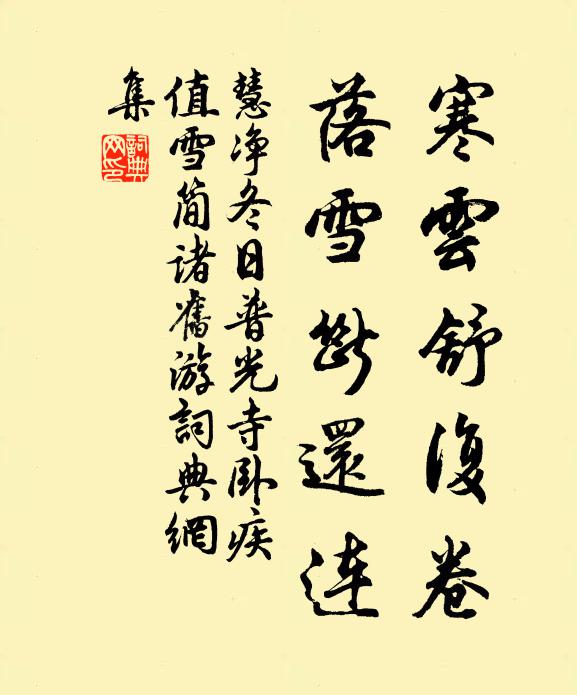 寒雲舒復卷
落雪斷還連
慧净冬日普光寺卧疾
值雪简诸舊游詞典網
集
詞典網印